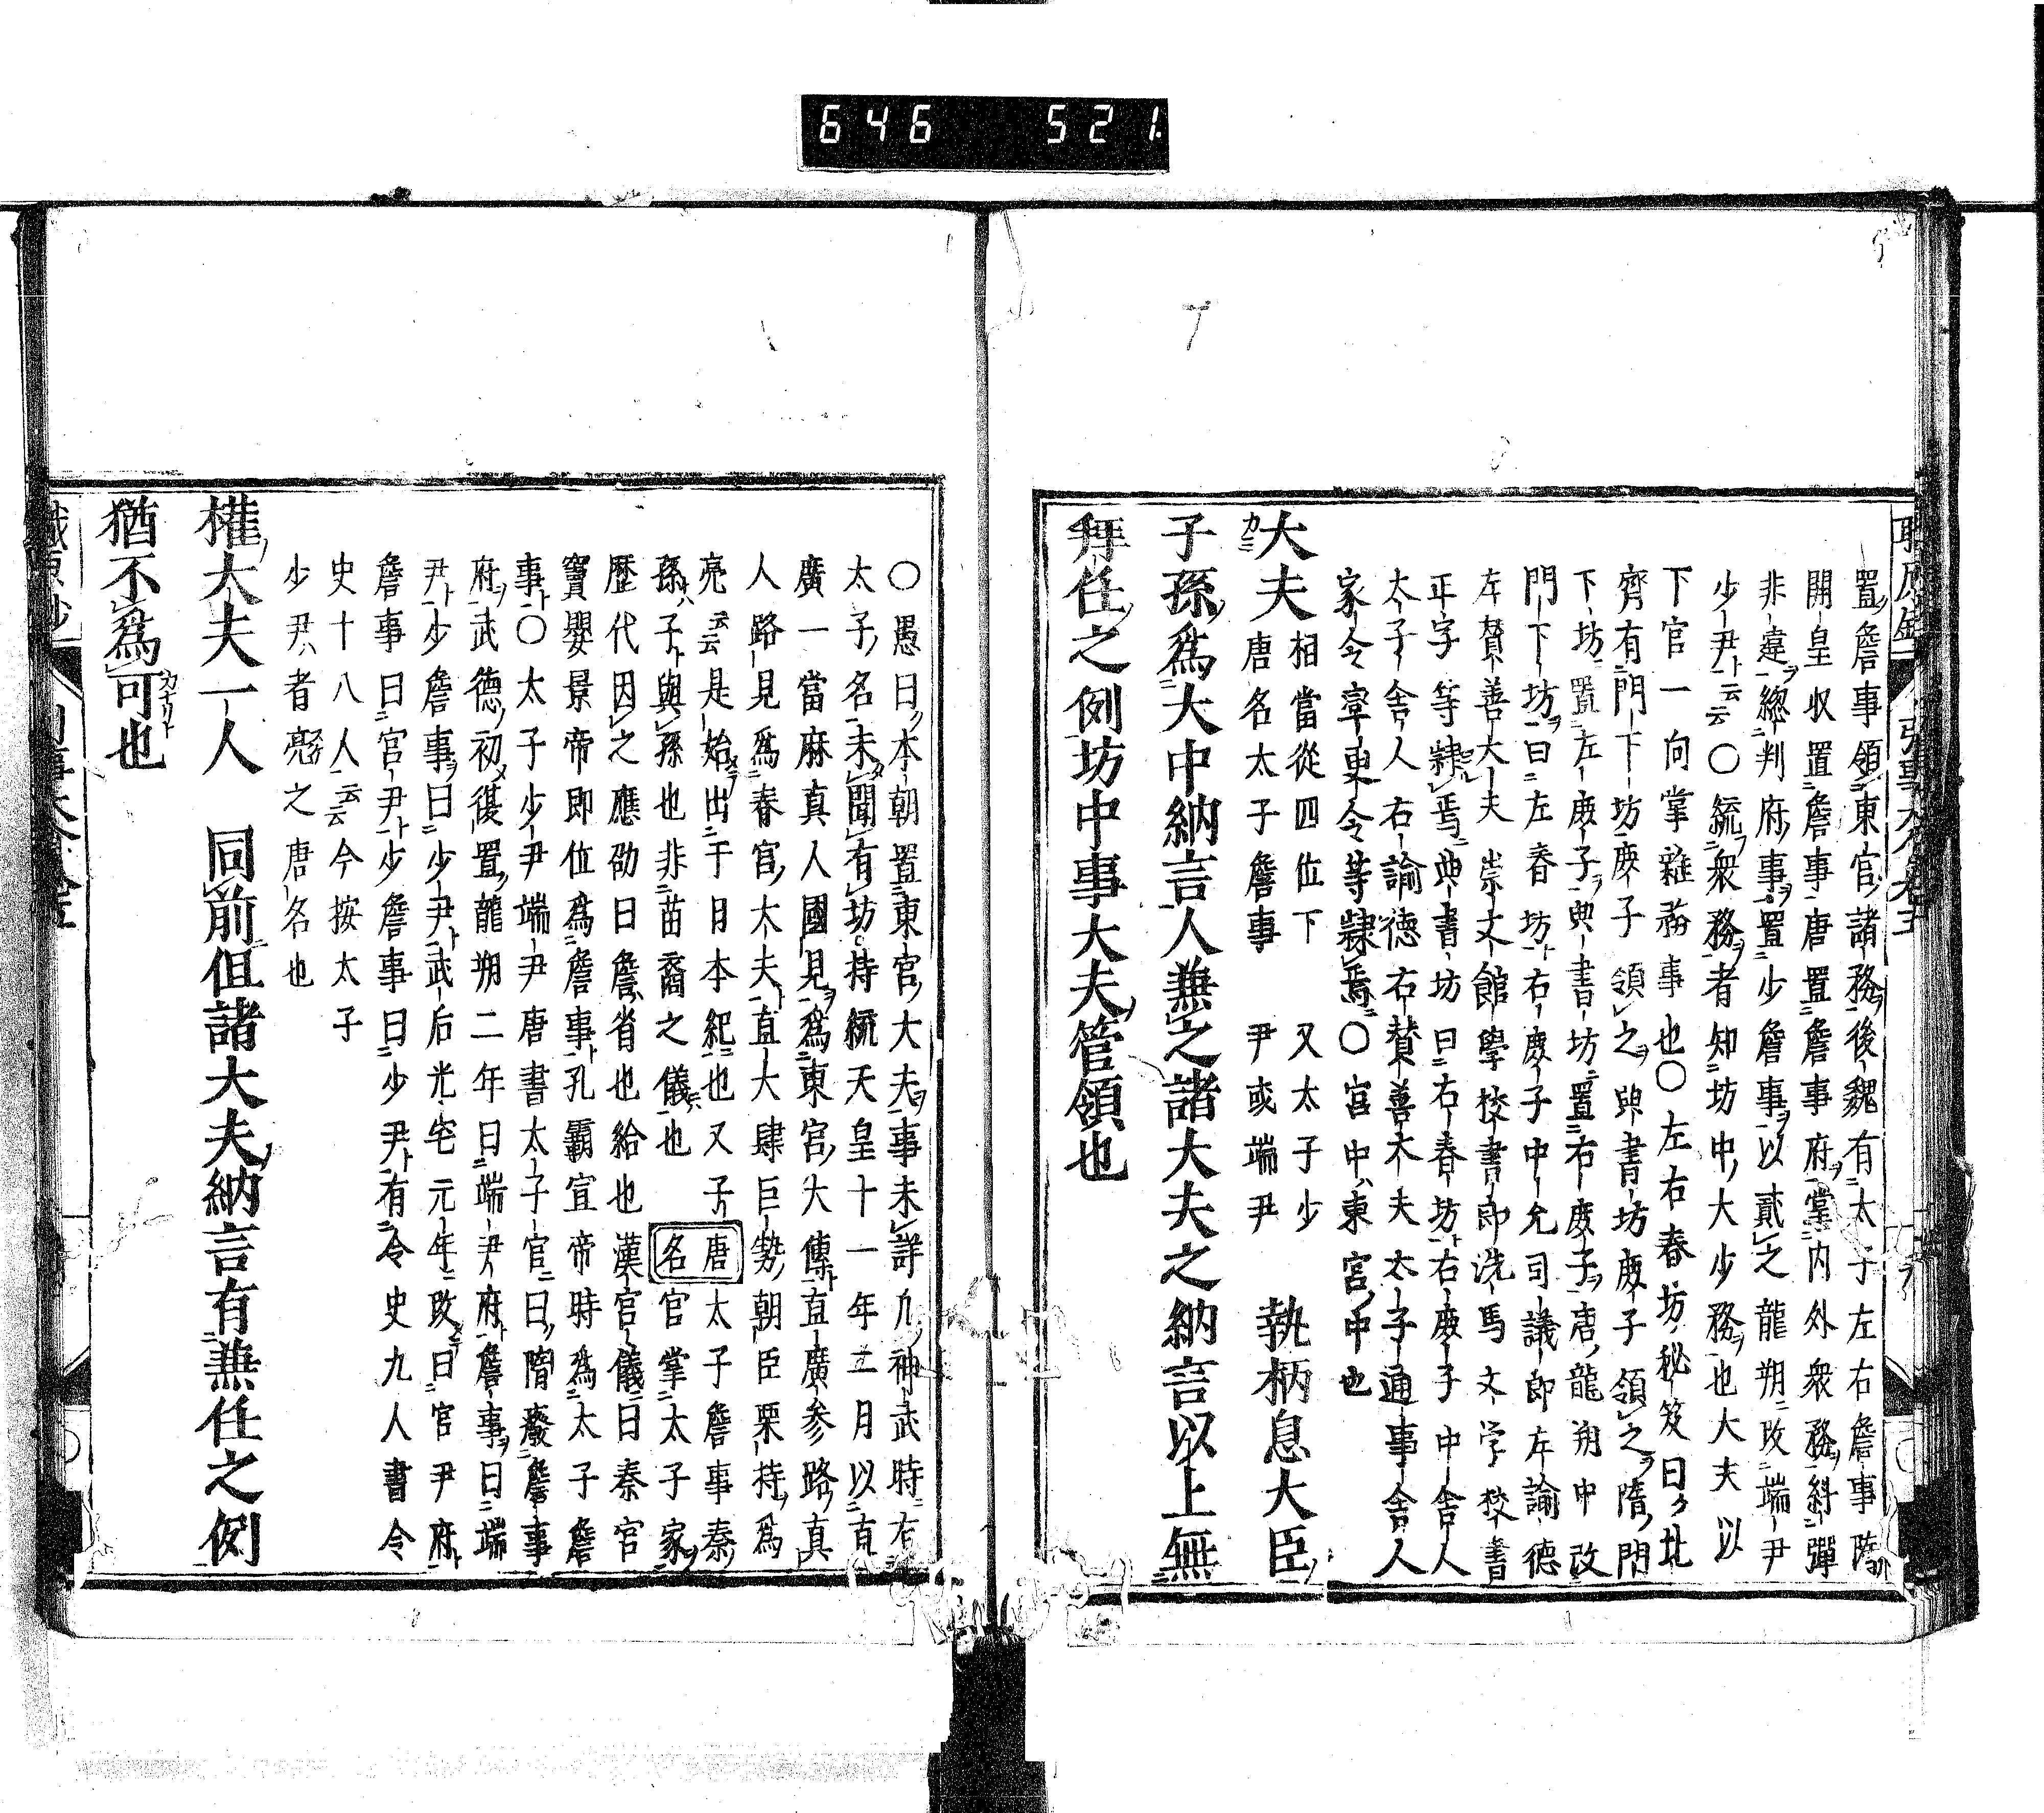 646 521
置詹事領東官諸務後魏有太子左右詹事隋
開皇収置詹事唐置詹事府掌内外衆務糾彈
非違總判府事置少詹事以貳之龍朔二改端尹
少尹云云〇統衆務者知坊中大少務也大夫以
下官一向掌雜務事也〇左右春坊秘笈曰北
齊有門下坊庶子領之典書坊庶子領之隋門
下坊置左庶子典書坊置右庶子唐龍朔中改
門下坊曰左春坊右庶子中允司議郎左諭德
左賛善大夫崇文館學校書郎洗馬文学校書
正字等隸焉典書坊曰右春坊右庶子中舎人
太子舎人右諭德右賛善大夫太子通事舎人
家令宰東令等隸焉〇宮中東宮中也
大夫 相當從四位下 唐名太子詹事 又太子少尹或端尹 執柄息大臣
子孫爲大中納言人兼之諸大夫之納言以上無
拜任之例坊中事大夫管領也
〇愚曰本朝置東官大夫事未詳凢神武時右
太子名未聞有坊持統天皇十一年二月以直
廣一當麻真人國見爲東宮大傳直廣參路真
人路見爲春官大夫直大肆巨勢朝臣栗持爲
亮云云是始出于日本紀也又子 唐名 太子詹事秦
孫子與孫也非苗裔之儀也 官掌太子家
歷代因之應劭曰詹省也給也漢官儀曰秦官
竇嬰景帝即位爲詹事孔霸宣帝時爲太子詹
事〇太子少尹端尹唐書太子官曰隋癈詹事
府武德初復置龍朔二年曰端尹府詹事曰端
尹少詹事曰少尹武后光宅元年改曰官尹府
詹事曰官尹少詹事曰少尹有令史九人書令
史十八人云云今按太子
少尹者亮之唐名也
權大夫一人 同前但諸大夫納言有兼任之例
猶不爲可也